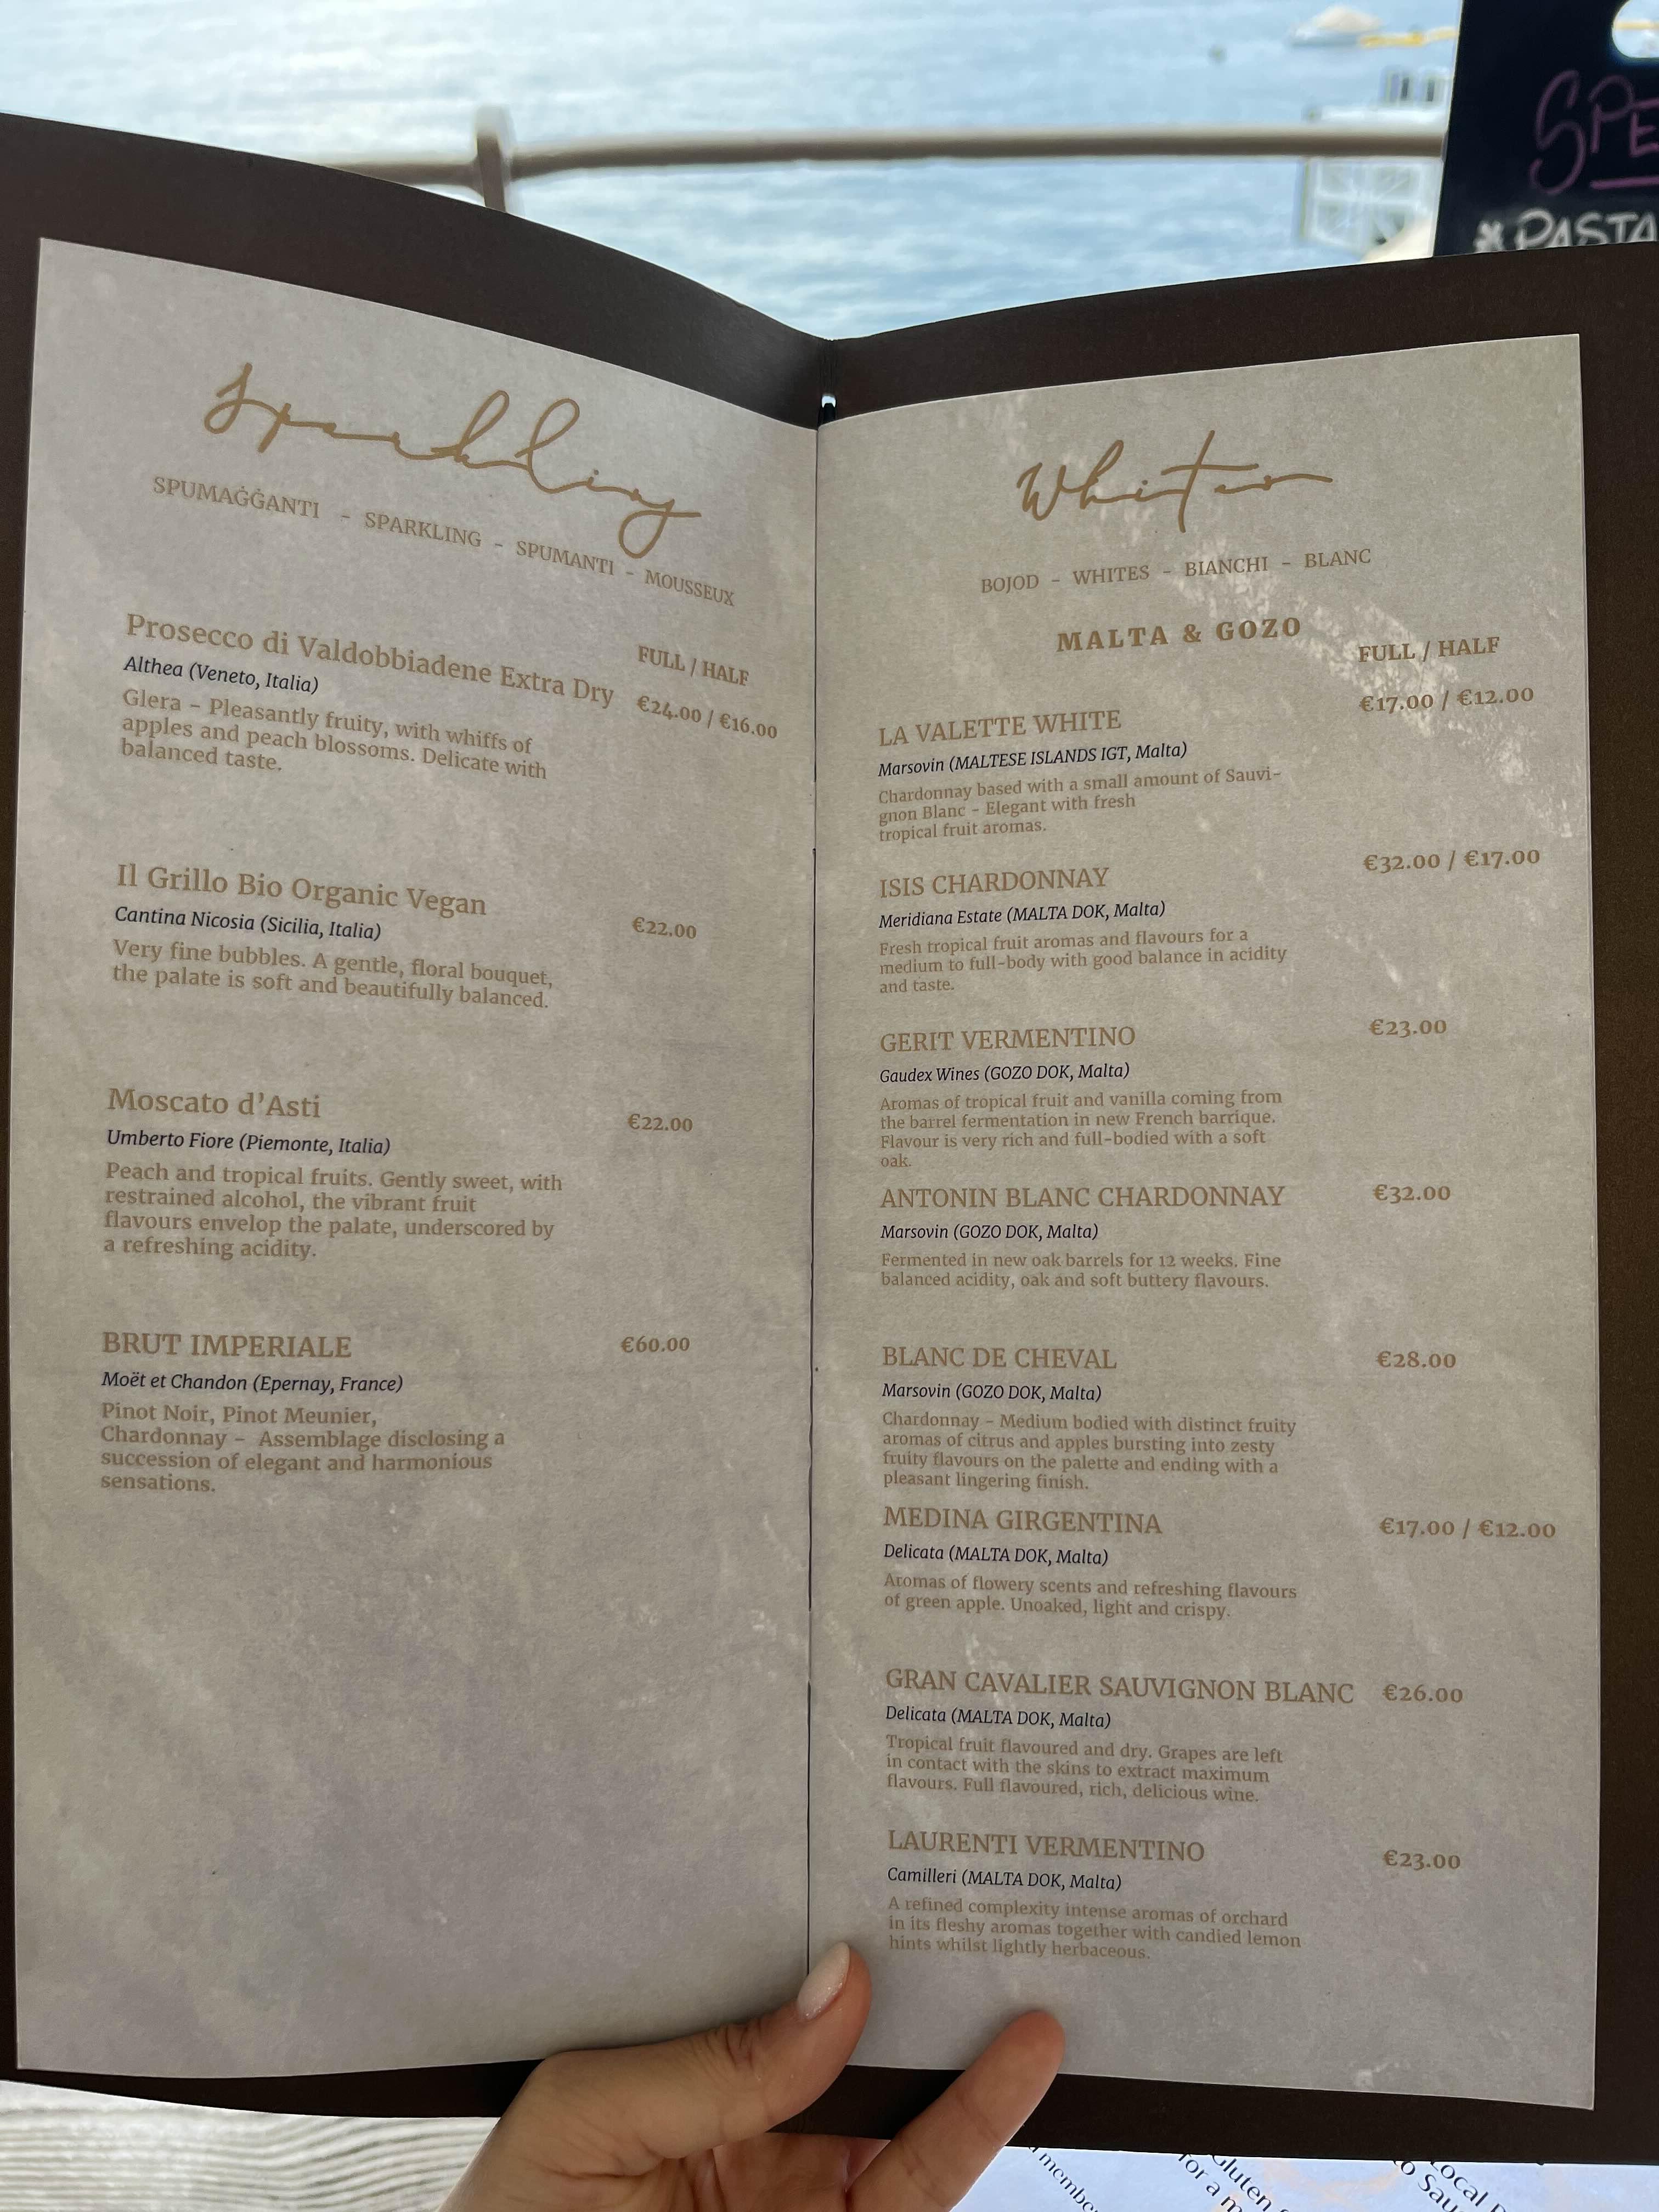 SPE
* PASTA
Sparkling
SPUMAĠĠANTI - SPARKLING - SPUMANTI - MOUSSEUX
FULL / HALF
Prosecco di Valdobbiadene Extra Dry €24.00 / €16.00
Althea (Veneto, Italia)
Glera - Pleasantly fruity, with whiffs of
apples and peach blossoms. Delicate with
balanced taste.
Il Grillo Bio Organic Vegan €22.00
Cantina Nicosia (Sicilia, Italia)
Very fine bubbles. A gentle, floral bouquet,
the palate is soft and beautifully balanced.
Moscato d'Asti €22.00
Umberto Fiore (Piemonte, Italia)
Peach and tropical fruits. Gently sweet, with
restrained alcohol, the vibrant fruit
flavours envelop the palate, underscored by
a refreshing acidity.
BRUT IMPERIALE €60.00
Moët et Chandon (Epernay, France)
Pinot Noir, Pinot Meunier,
Chardonnay - Assemblage disclosing a
succession of elegant and harmonious
sensations.
Whites
BOJOD - WHITES - BIANCHI - BLANC
MALTA & GOZO
FULL / HALF
LA VALETTE WHITE €17.00 / €12.00
Marsovin (MALTESE ISLANDS IGT, Malta)
Chardonnay based with a small amount of Sauvi-
gnon Blanc - Elegant with fresh
tropical fruit aromas.
ISIS CHARDONNAY €32.00 / €17.00
Meridiana Estate (MALTA DOK, Malta)
Fresh tropical fruit aromas and flavours for a
medium to full-body with good balance in acidity
and taste.
GERIT VERMENTINO €23.00
Gaudex Wines (GOZO DOK, Malta)
Aromas of tropical fruit and vanilla coming from
the barrel fermentation in new French barrique.
Flavour is very rich and full-bodied with a soft
oak.
ANTONIN BLANC CHARDONNAY €32.00
Marsovin (GOZO DOK, Malta)
Fermented in new oak barrels for 12 weeks. Fine
balanced acidity, oak and soft buttery flavours.
BLANC DE CHEVAL €28.00
Marsovin (GOZO DOK, Malta)
Chardonnay - Medium bodied with distinct fruity
aromas of citrus and apples bursting into zesty
fruity flavours on the palette and ending with a
pleasant lingering finish.
MEDINA GIRGENTINA €17.00 / €12.00
Delicata (MALTA DOK, Malta)
Aromas of flowery scents and refreshing flavours
of green apple. Unoaked, light and crispy.
GRAN CAVALIER SAUVIGNON BLANC €26.00
Delicata (MALTA DOK, Malta)
Tropical fruit flavoured and dry. Grapes are left
in contact with the skins to extract maximum
flavours. Full flavoured, rich, delicious wine.
LAURENTI VERMENTINO €23.00
Camilleri (MALTA DOK, Malta)
A refined complexity intense aromas of orchard
in its fleshy aromas together with candied lemon
hints whilst lightly herbaceous.
Gluten
for a m